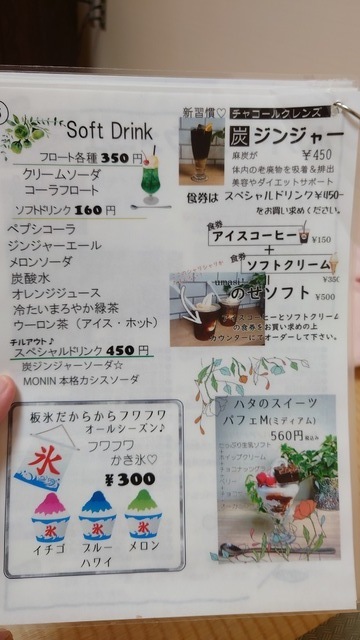 Soft Drink
フロート各種 350 円
クリームソーダ
コーラフロート
ソフトドリンク 160 円
ペプシコーラ
ジンジャーエール
メロンソーダ
炭酸水
オレンジジュース
冷たいまろやか緑茶
ウーロン茶（アイス・ホット）
チルアウト♪
スペシャルドリンク 450 円
炭ジンジャーソーダ☆
MONIN 本格カシスソーダ
板氷だからからフワフワ
オールシーズン♪
氷
フワフワ
かき氷♡
¥300
氷
氷
氷
イチゴ
ブルーハワイ
メロン
新習慣♡
チャコールクレンズ
炭ジンジャー
麻炭が
¥450
体内の老廃物を吸着＆排出
美容やダイエットサポート
食券は スペシャルドリンク¥450
をお買い求めください。
食券
アイスコーヒー
¥150
＋
食券
ソフトクリーム
¥350
umasi!
のせソフト
¥500
アイスコーヒーとソフトクリーム
の食券をお買い求めの上
カウンターにてオーダーして下さい。
ハタのスイーツ
パフェM(ミディアム)
560円税込み